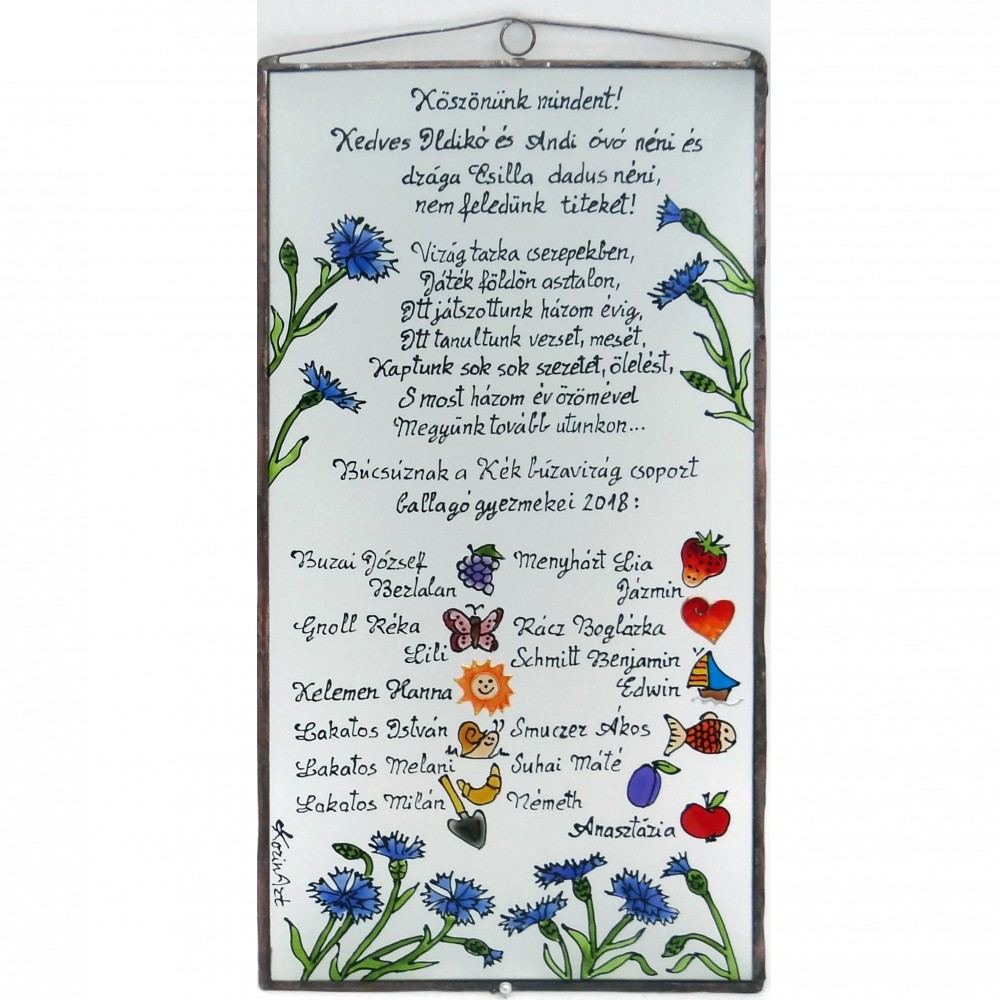 Köszönünk mindent!
Kedves Ildikó és Andi óvó néni és
drága Csilla dadus néni,
nem feledünk titeket!
Virág tarka cserepekben,
Játék földön asztalon,
Itt játszottunk három évig,
Itt tanultunk verset, mesét,
Kaptunk sok sok szeretet, ölelést,
S most három év örömével
Megyünk tovább utunkon...
Búcsúznak a Kék búzavirág csoport
ballagó gyermekei 2018:
Buzai József
Bertalan
Groll Réka
Lili
Kelemen Hanna
Lakatos István
Lakatos Melani
Lakatos Milán
Menyhárt Lia
Jázmin
Rácz Boglárka
Schmitt Benjamin
Edwin
Smuczer Ákos
Suhai Máté
Németh
Anasztázia
KorinArt